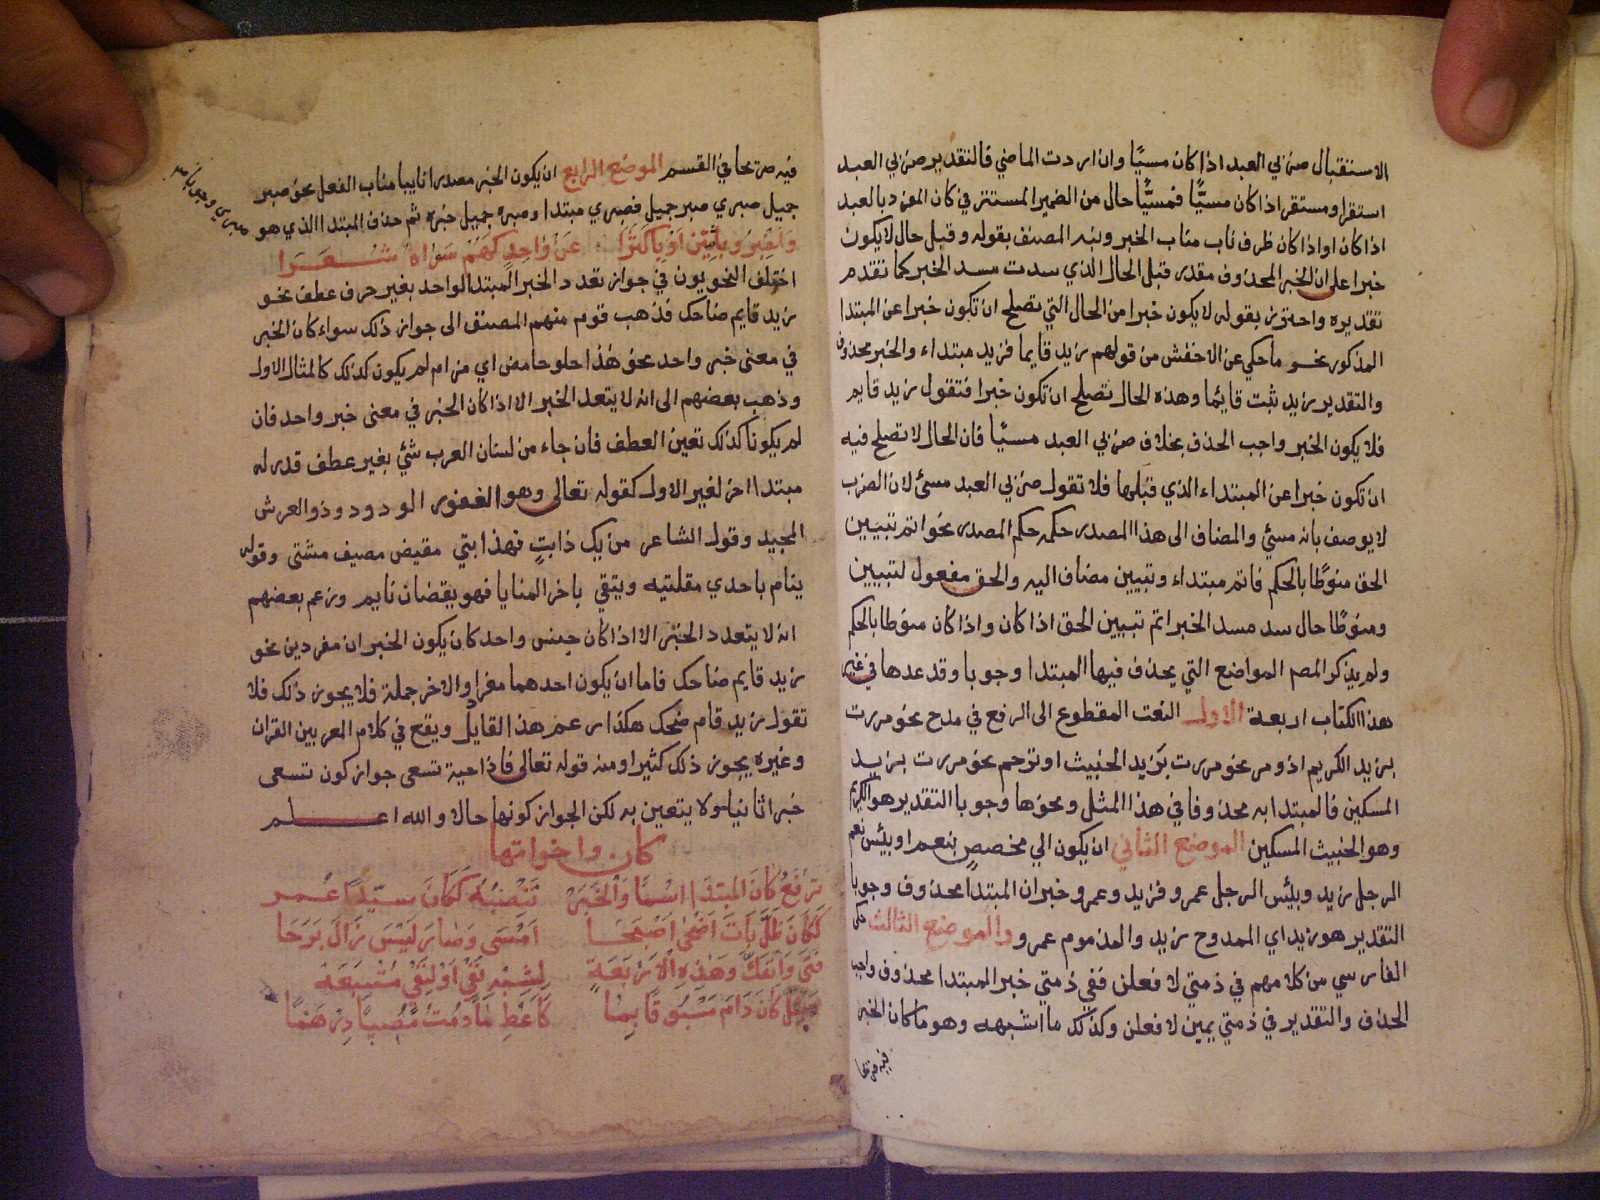 الاستقبال ضربي العبد اذا كان مسيًا وان اردت الماضي فالتقدير ضربي العبد
استقر او مستقر اذا كان مسيًّا فمسيًّا حال من الضمير المستتر في كان المفرد بالعبد
اذا كان او اذا كان ظرف ناب مناب الخبر ونبه المصنف بقوله وقبل حال لا يكون
خبرا على ان الخبر المحذوف مقدر قبل الحال الذي سدت مسد الخبر كما تقدم
تقديره واحترز بقوله لا يكون خبرا من الحال التي تصلح ان تكون خبرا عن المبتدا
المذكور نحو ما حكي عن الاخفش من قولهم زيد قايما فزيد مبتداء والخبر محذوف
والتقدير زيد ثبت قايمًا وهذه الحال تصلح ان تكون خبرا فتقول زيد قايم
فلا يكون الخبر واجب الحذف بخلاف ضربي العبد مسيًا فان الحال لا تصلح فيه
ان تكون خبرا عن المبتداء الذي قبلها فلا تقول ضربي العبد مسئ لان الضرب
لا يوصف بانه مسئ والمضاف الى هذا المصدر حكمه حكم المصدر نحو اتم تبيين
الحق منوطًا بالحكم فاتم مبتداء وتبيين مضاف اليه والحق مفعول لتبيين
ومنوطًا حال سد مسد الخبر اتم تبيين الحق اذا كان واذا كان منوطا بالحكم
ولم يذكر المصم المواضع التي يحذف فيها المبتدا وجوبا وقد عدها في غير
هذا الكتاب اربعة الاول النعت المقطوع الى الرفع في مدح نحو مررت
بزيد الكريم اذ ومر نحو مررت بزيد الخبيث او ترحم نحو مررت بزيد
المسكين فالمبتدا به محذوفا في هذا المثل ونحوها وجوبا التقدير هو الكريم
وهو الخبيث المسكين الموضع الثاني ان يكون الي مخصص بنعم او بيئس نعم
الرجل زيد وبيئس الرجل عمرو فزيد وعمرو خبران المبتدا محذوف وجوبا
التقدير هو زيد اي الممدوح زيد والمذموم عمرو والموضع الثالث حكى
الفارسي من كلامهم في ذمتي لا فعلن ففي ذمتي خبر المبتدا محذوف واجب
الحذف والتقدير في ذمتي يمين لا فعلن وكذلك ما اشبهه وهو ما كان الخبر
فيه صريحا
فيه صريحا في القسم الموضع الرابع ان يكون الخبر مصدرا نايبا مناب الفعل نحو صبر
جميل صبري صبر جميل فصبري مبتدا وصبر جميل خبره ثم حذف المبتدا الذي هو
صبري وجوبا
وَاَخْبِرُوا بِاثْنَيْن اَوْ بِاَكْثَرَا عَنْ وَاحِدٍ كَهُمْ سَرَاة شُعَرَا
اختلف النحويون في جواز تعدد الخبر المبتدا الواحد بغير حرف عطف نحو
زيد قايم ضاحك فذهب قوم منهم المصنف الى جواز ذلك سواء كان الخبر
في معنى خبر واحد نحو هذا حلو حامض اي مز ام لم يكون كذلك كالمثال الاول
وذهب بعضهم الى انه لا يتعد الخبر الا اذا كان الخبر في معنى خبر واحد فان
لم يكونا كذلك تعين العطف فان جاء من لسان العرب شئ بغير عطف قدر له
مبتدا اخر لغير الاول كقوله تعالى وهو الغفور الودود وذو العرش
المجيد وقول الشاعر من يك ذا بتٍ فهذا بتي مقيض مصيف مشتى وقوله
ينام باحدي مقلتيه ويتقي باخر المنايا فهو يقضان نايم وزعم بعضهم
انه لا يتعدد الخبر الا اذا كان جنس واحد كان يكون الخبران مفردين نحو
زيد قايم ضاحك فاما ان يكون احدهما مفرا والاخر جملة فلا يجوز ذلك فلا
تقول زيد قام ضحك هكذا زعم هذا القايل ويقع في كلام المعربين القران
وغيره يجوز ذلك كثيرا ومنه قوله تعالى فاذا حية تسعى جواز كون تسعى
خبرا ثانيا ولا يتعين به لكن الجواز كونها حالا والله اعلم
كان واخواتها
تَرْفَعُ كَانَ المبْتَدَا اسْمًا وَالْخَبَرْ تَنْصِبُهُ كَكَانَ سَيّدًا عُمَر
كَكَانَ ظَلَّ بَاتَ اَضْحَى اَصْبَحَا اَمْسَى وَصَارَ لَيْسَ زَالَ بَرِحَا
فَتَى وَانْفَكَّ وَهَذِهِ الاَرْبَعَة لِشِبْهِ نَفْيٍ اَوْ لِنَفْيٍ مُتْبَعَه
وَمِثْلُ كَانَ دَامَ مَسْبُوقًا بِمَا كَاَعْطِ مَادُمْتَ مُصِيبًا دِرْهَمًا